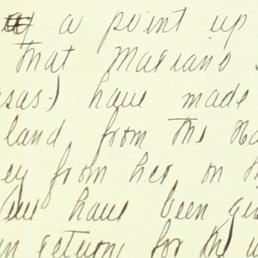 at a point up
that Mariano
sas.) have made
land from the Ha
ey from her, on th
have been gi
in return, for the w